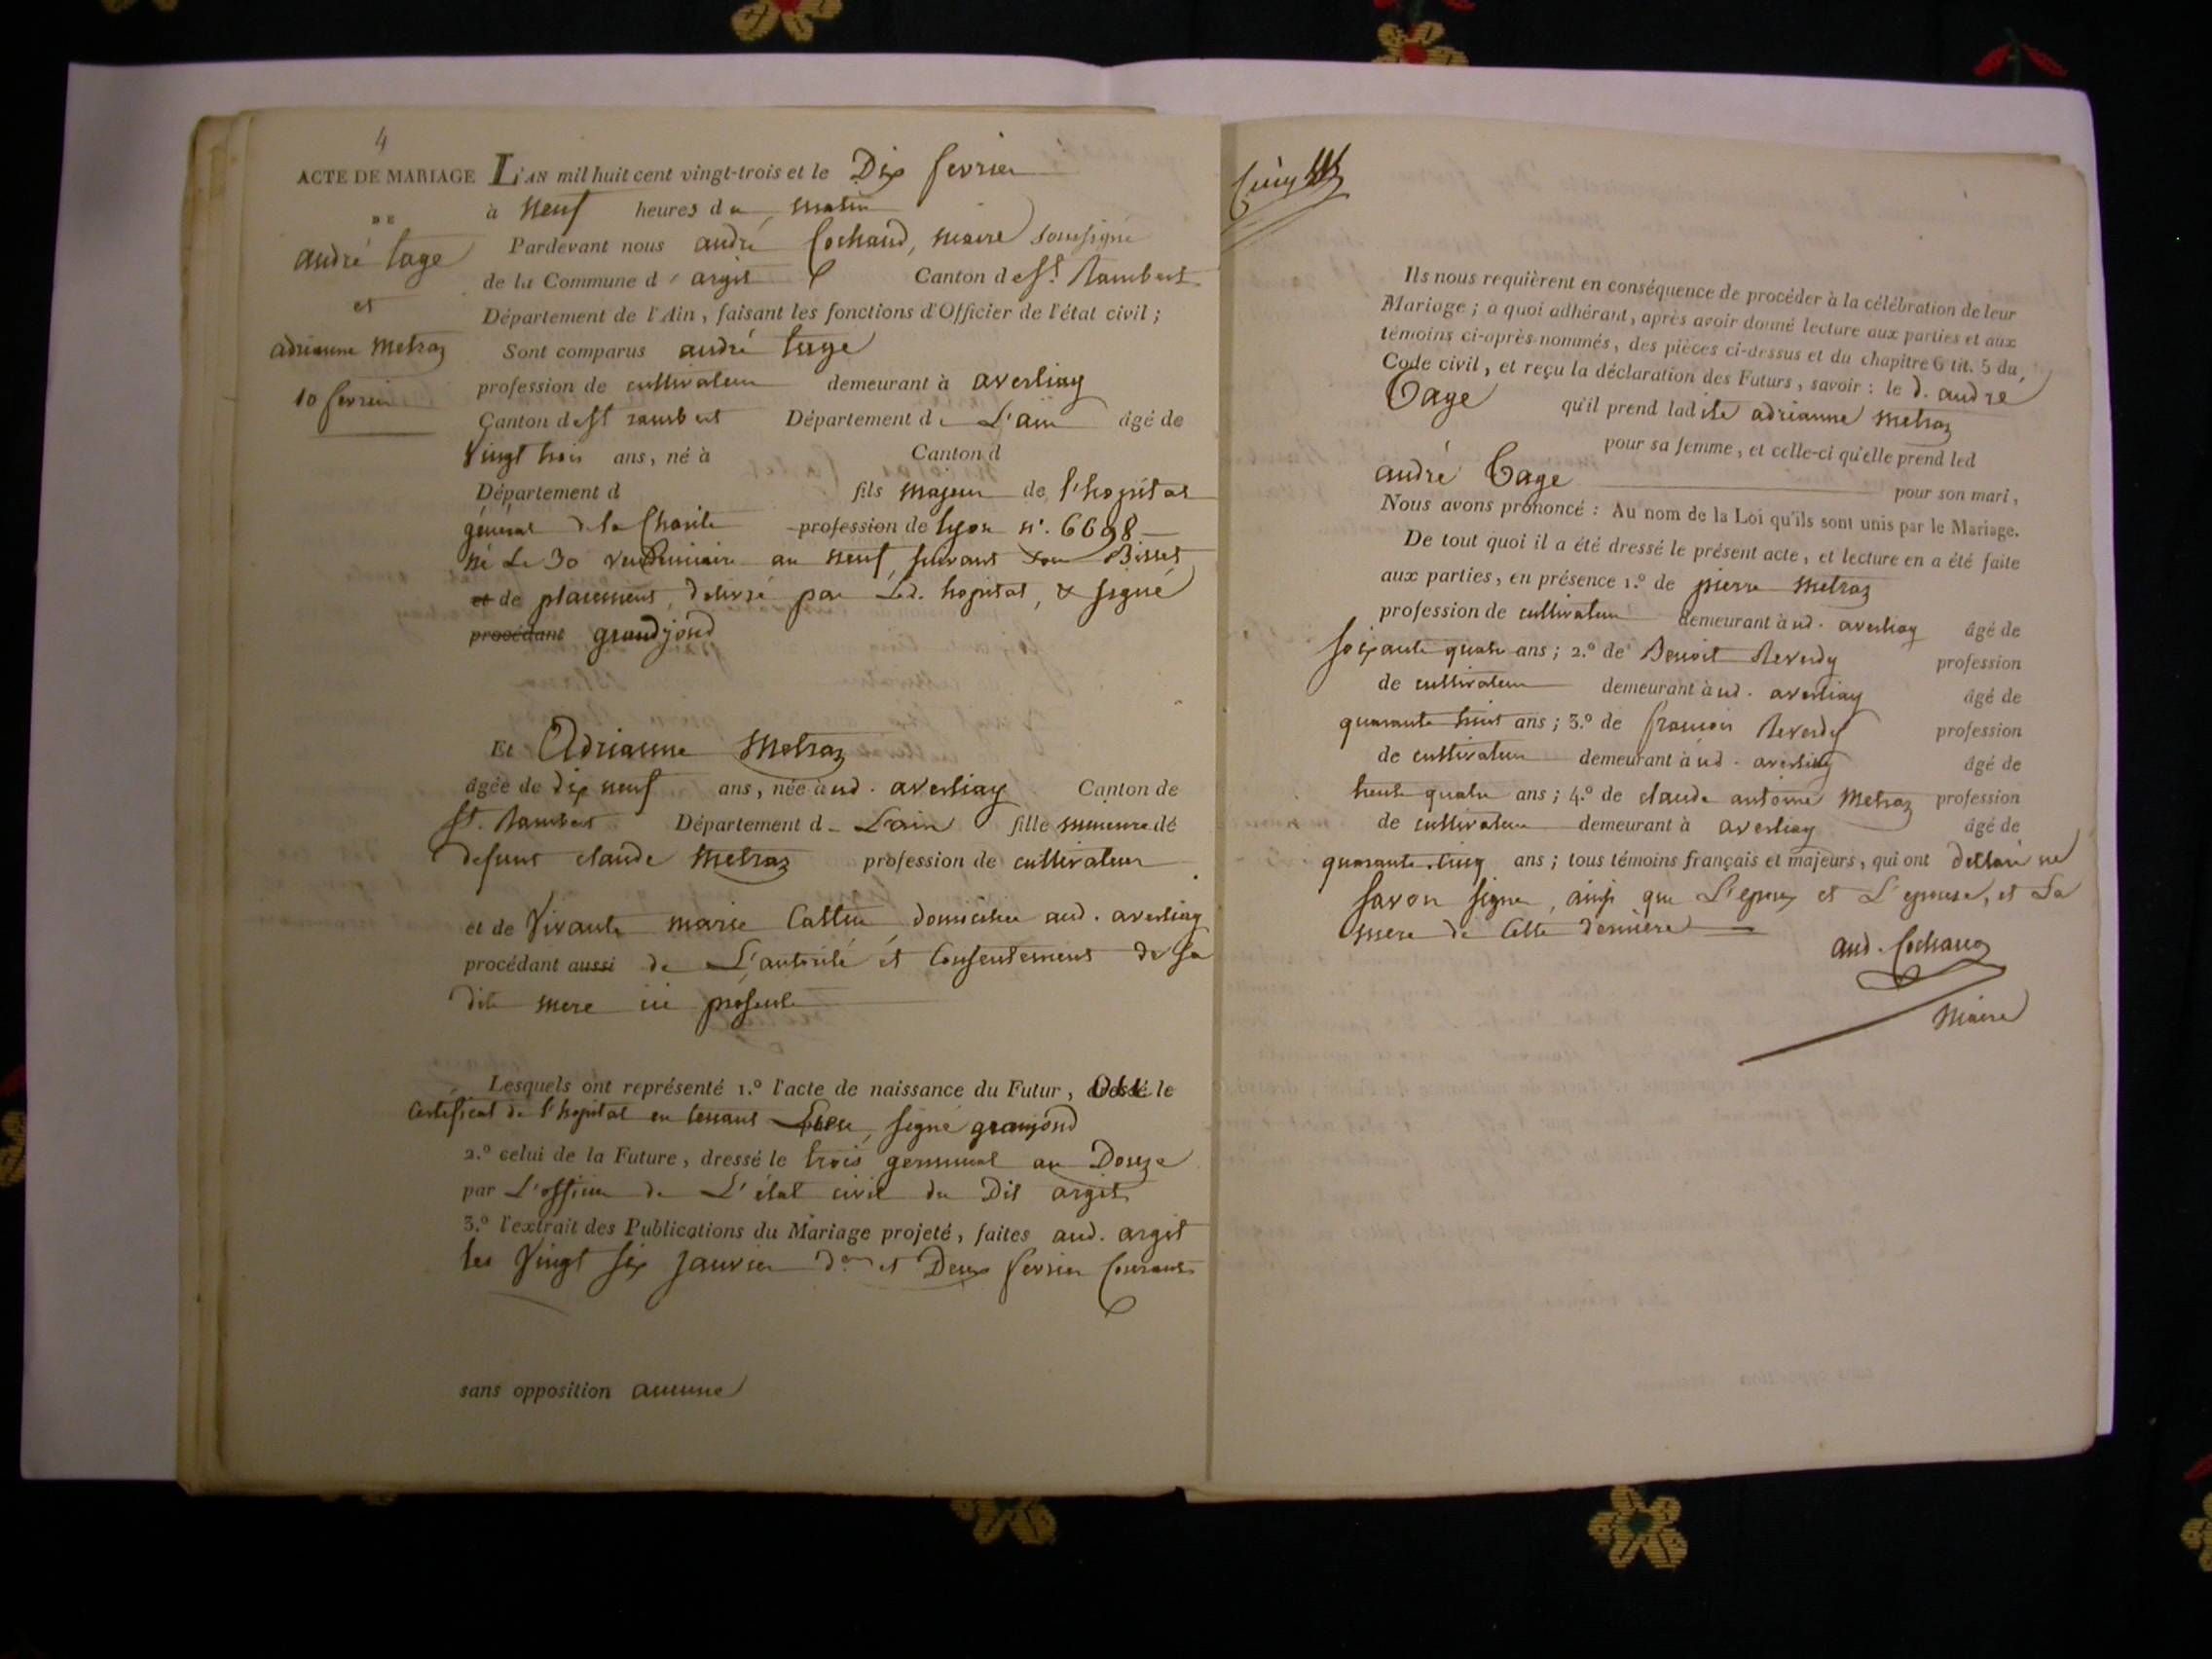 4
ACTE DE MARIAGE
DE
andré tage
et
adrianne Metraz
10 fevrier
L'AN mil huit cent vingt-trois et le Dix fevrier
à neuf heures du matin
Pardevant nous andré Cochaud, maire soussigné
de la Commune d'argis Canton de st. Rambert
Département de l'Ain, faisant les fonctions d'Officier de l'état civil ;
Sont comparus andré tage
profession de cultivateur demeurant à averliay
Canton de st rambert Département de L'ain âgé de
Vingt trois ans, né à Canton d
Département d fils majeur de l'hopital
général de la Charité profession de lyon n°. 6698
né Le 30 vendemiaire an neuf, suivant son
et de placement, delivré par Led. hopital, & signé
procédant grandjond
Et Adrianne Metraz
âgée de dix neuf ans, née à ud. averliay Canton de
St. Rambert Département de L'ain fille mineure de
defunt claude Metraz profession de cultivateur
et de Vivante marie domiciliée aud. averliay
procédant aussi de L'autorité et Consentement de sa
dite mere ici presente
Lesquels ont représenté 1.º l'acte de naissance du Futur, dressé le
Certificat de l'hopital en tenant signé granjond
2.º celui de la Future, dressé le trois germinal an Douze
par L'officier de L'état civil du Dit argis
3.º l'extrait des Publications du Mariage projeté, faites aud. argis
les Vingt six janvier d.er et Deux fevrier Courant
sans opposition aucune
Cinq
Ils nous requièrent en conséquence de procéder à la célébration de leur
Mariage ; a quoi adhérant, après avoir donné lecture aux parties et aux
témoins ci-après nommés, des pièces ci-dessus et du chapitre 6 tit. 5 du
Code civil, et reçu la déclaration des Futurs, savoir : le d. andré
Tage qu'il prend ladite adrianne Metraz
pour sa femme, et celle-ci qu'elle prend led
andré Tage pour son mari,
Nous avons prononcé : Au nom de la Loi qu'ils sont unis par le Mariage.
De tout quoi il a été dressé le présent acte, et lecture en a été faite
aux parties, en présence 1.º de pierre Metraz
profession de cultivateur demeurant à ud. averliay âgé de
soixante quatre ans ; 2.º de Benoit Reverdy profession
de cultivateur demeurant à ud. averliay âgé de
quarante huit ans ; 3.º de françois Reverdy profession
de cultivateur demeurant à ud. averliay âgé de
trente quatre ans ; 4.º de claude antoine Metraz profession
de cultivateur demeurant à averliay âgé de
quarante cinq ans ; tous témoins français et majeurs, qui ont declaré ne
savoir signer, ainsi que L'epoux et L'epouse, et La
mere de Cette derniere
and. Cochaud
Maire